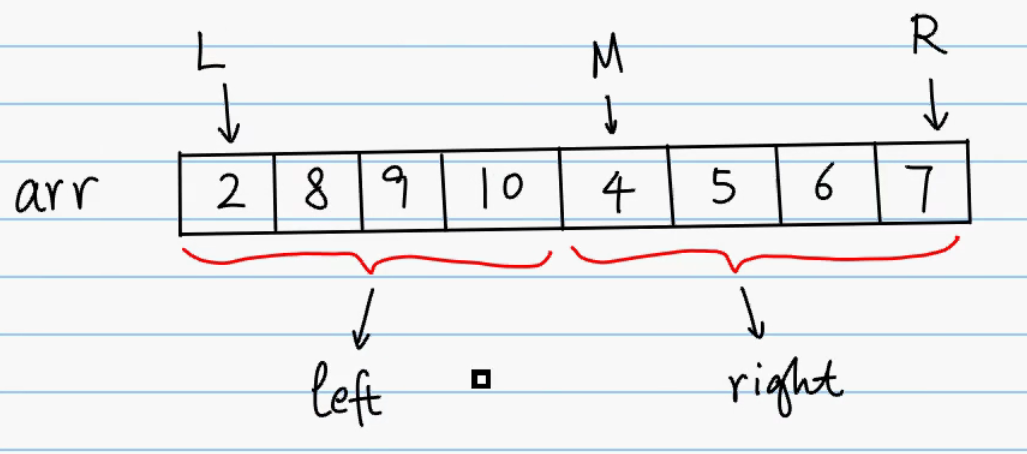 L M R
arr 2 8 9 10 4 5 6 7
left right